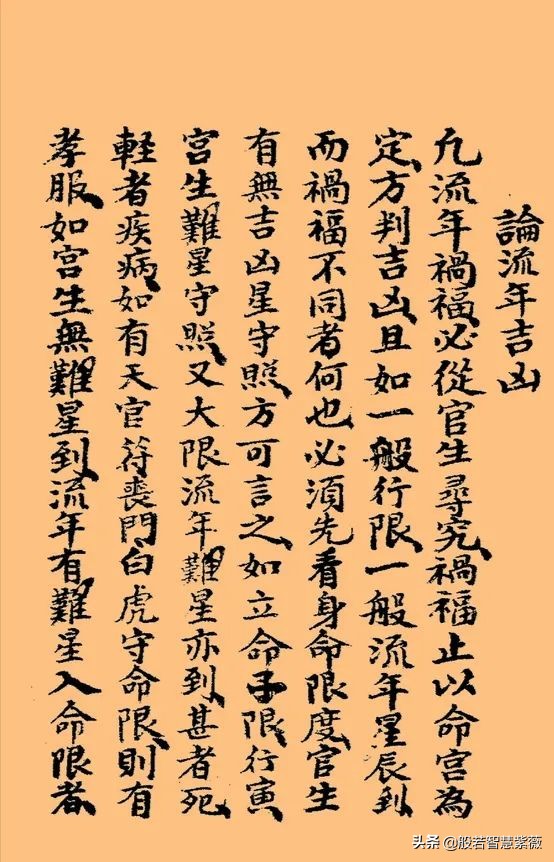 論流年吉凶
凡流年禍福必從官生尋究禍福止以命宮為
定方判吉凶且如一般行限一般流年星辰到
而禍福不同者何也必須先看身命限度官生
有無吉凶星守照方可言之如立命子限行寅
宮生難星守照又大限流年難星亦到甚者死
輕者疾病如有天官符喪門白虎守命限則有
孝服如宮生無難星到流年有難星入命限者
头条 @般若智慧紫薇